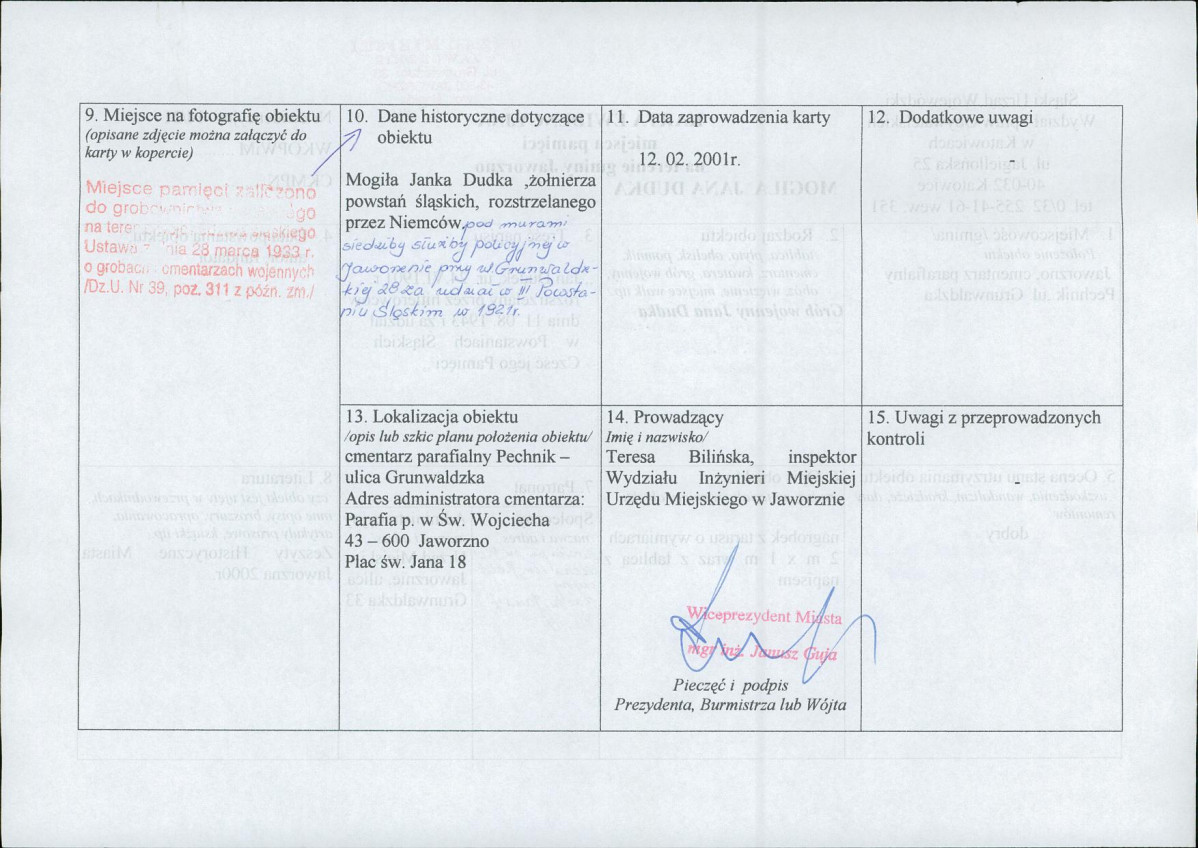 9. Miejsce na fotografię obiektu
(opisane zdjęcie można załączyć do
karty w kopercie)
Miejsce pamięci zaliczono
do grobownictwa
na tere
Ustawa nia 28 marca 1933 r.
o grobach cmentarzach wojennych
/Dz.U. Nr 39, poz. 311 z późn. zm./
10. Dane historyczne dotyczące
obiektu
Mogiła Janka Dudka ,żołnierza
powstań śląskich, rozstrzelanego
przez Niemców, pod murami
siedziby służby policyjnej w
Jaworznie przy ul Grunwaldz-
kiej 28 za udział w III Powsta-
niu Śląskim w 1921r.
11. Data zaprowadzenia karty
12. 02. 2001r.
12. Dodatkowe uwagi
-
13. Lokalizacja obiektu
/opis lub szkic planu położenia obiektu/
cmentarz parafialny Pechnik –
ulica Grunwaldzka
Adres administratora cmentarza:
Parafia p. w Św. Wojciecha
43 – 600 Jaworzno
Plac św. Jana 18
14. Prowadzący
Imię i nazwisko/
Teresa Bilińska, inspektor
Wydziału Inżynieri Miejskiej
Urzędu Miejskiego w Jaworznie
Wiceprezydent Miasta
mgr inż. Janusz Guja
Pieczęć i podpis
Prezydenta, Burmistrza lub Wójta
15. Uwagi z przeprowadzonych
kontroli
-